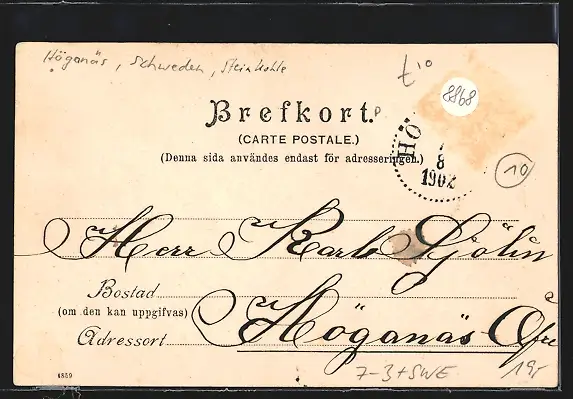 Höganäs, Schweden, Steinkohle
t 10
8868
Brefkort.
(CARTE POSTALE.)
(Denna sida användes endast för adresseringen.)
HÖ
8
1902
10
Herr Karl Sjölin
Bostad
(om den kan uppgifvas)
Höganäs Öfre
Adressort
4859
7-3+SWE
19,-